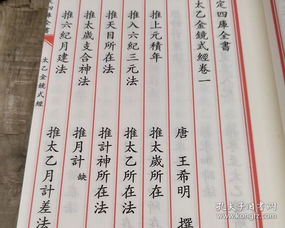 定四庫全書
太乙金鏡式經卷一
唐 王希明 撰
推上元積年 推太歲所在法
推入六紀三元法 推太乙所在法
推天目所在法 推計神所在法
推太歲支合神法 推月計 缺
推六紀月建法 推太乙月計差法
四庫全書
太乙金鏡式經
孔夫子旧书网